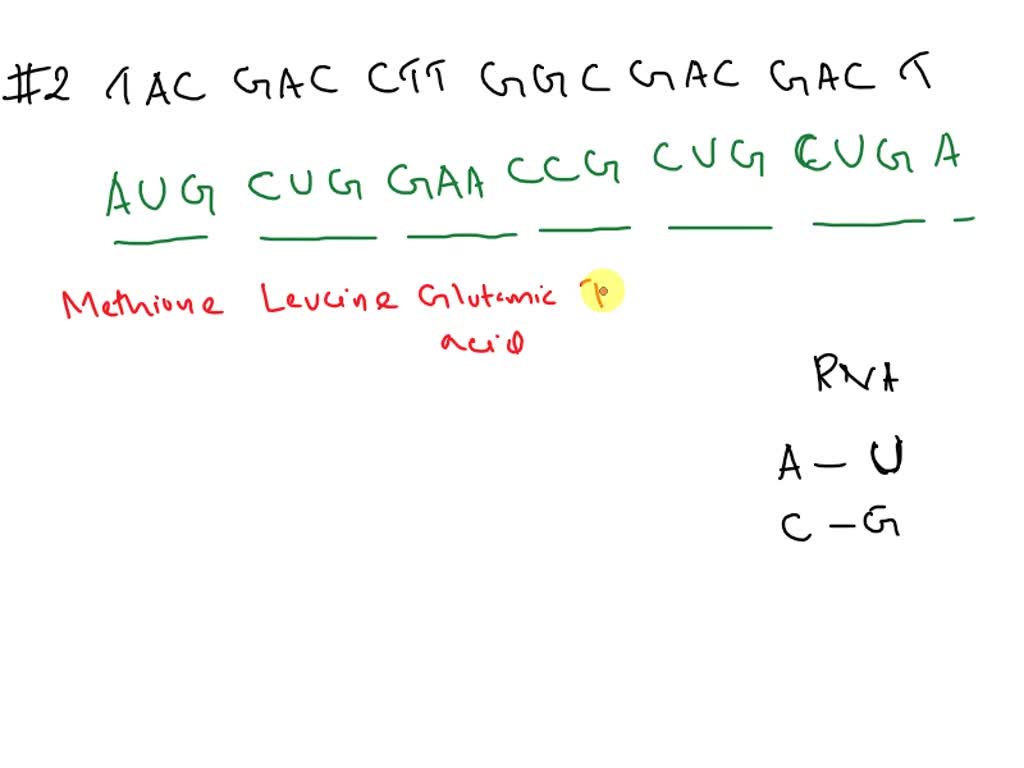 #2 TAC GAC CTT GGC GAC GAC T
AUG CUG GAA CCG CUG CUG A
Methione Leucine Glutamic P
acid
RNA
A - U
C - G